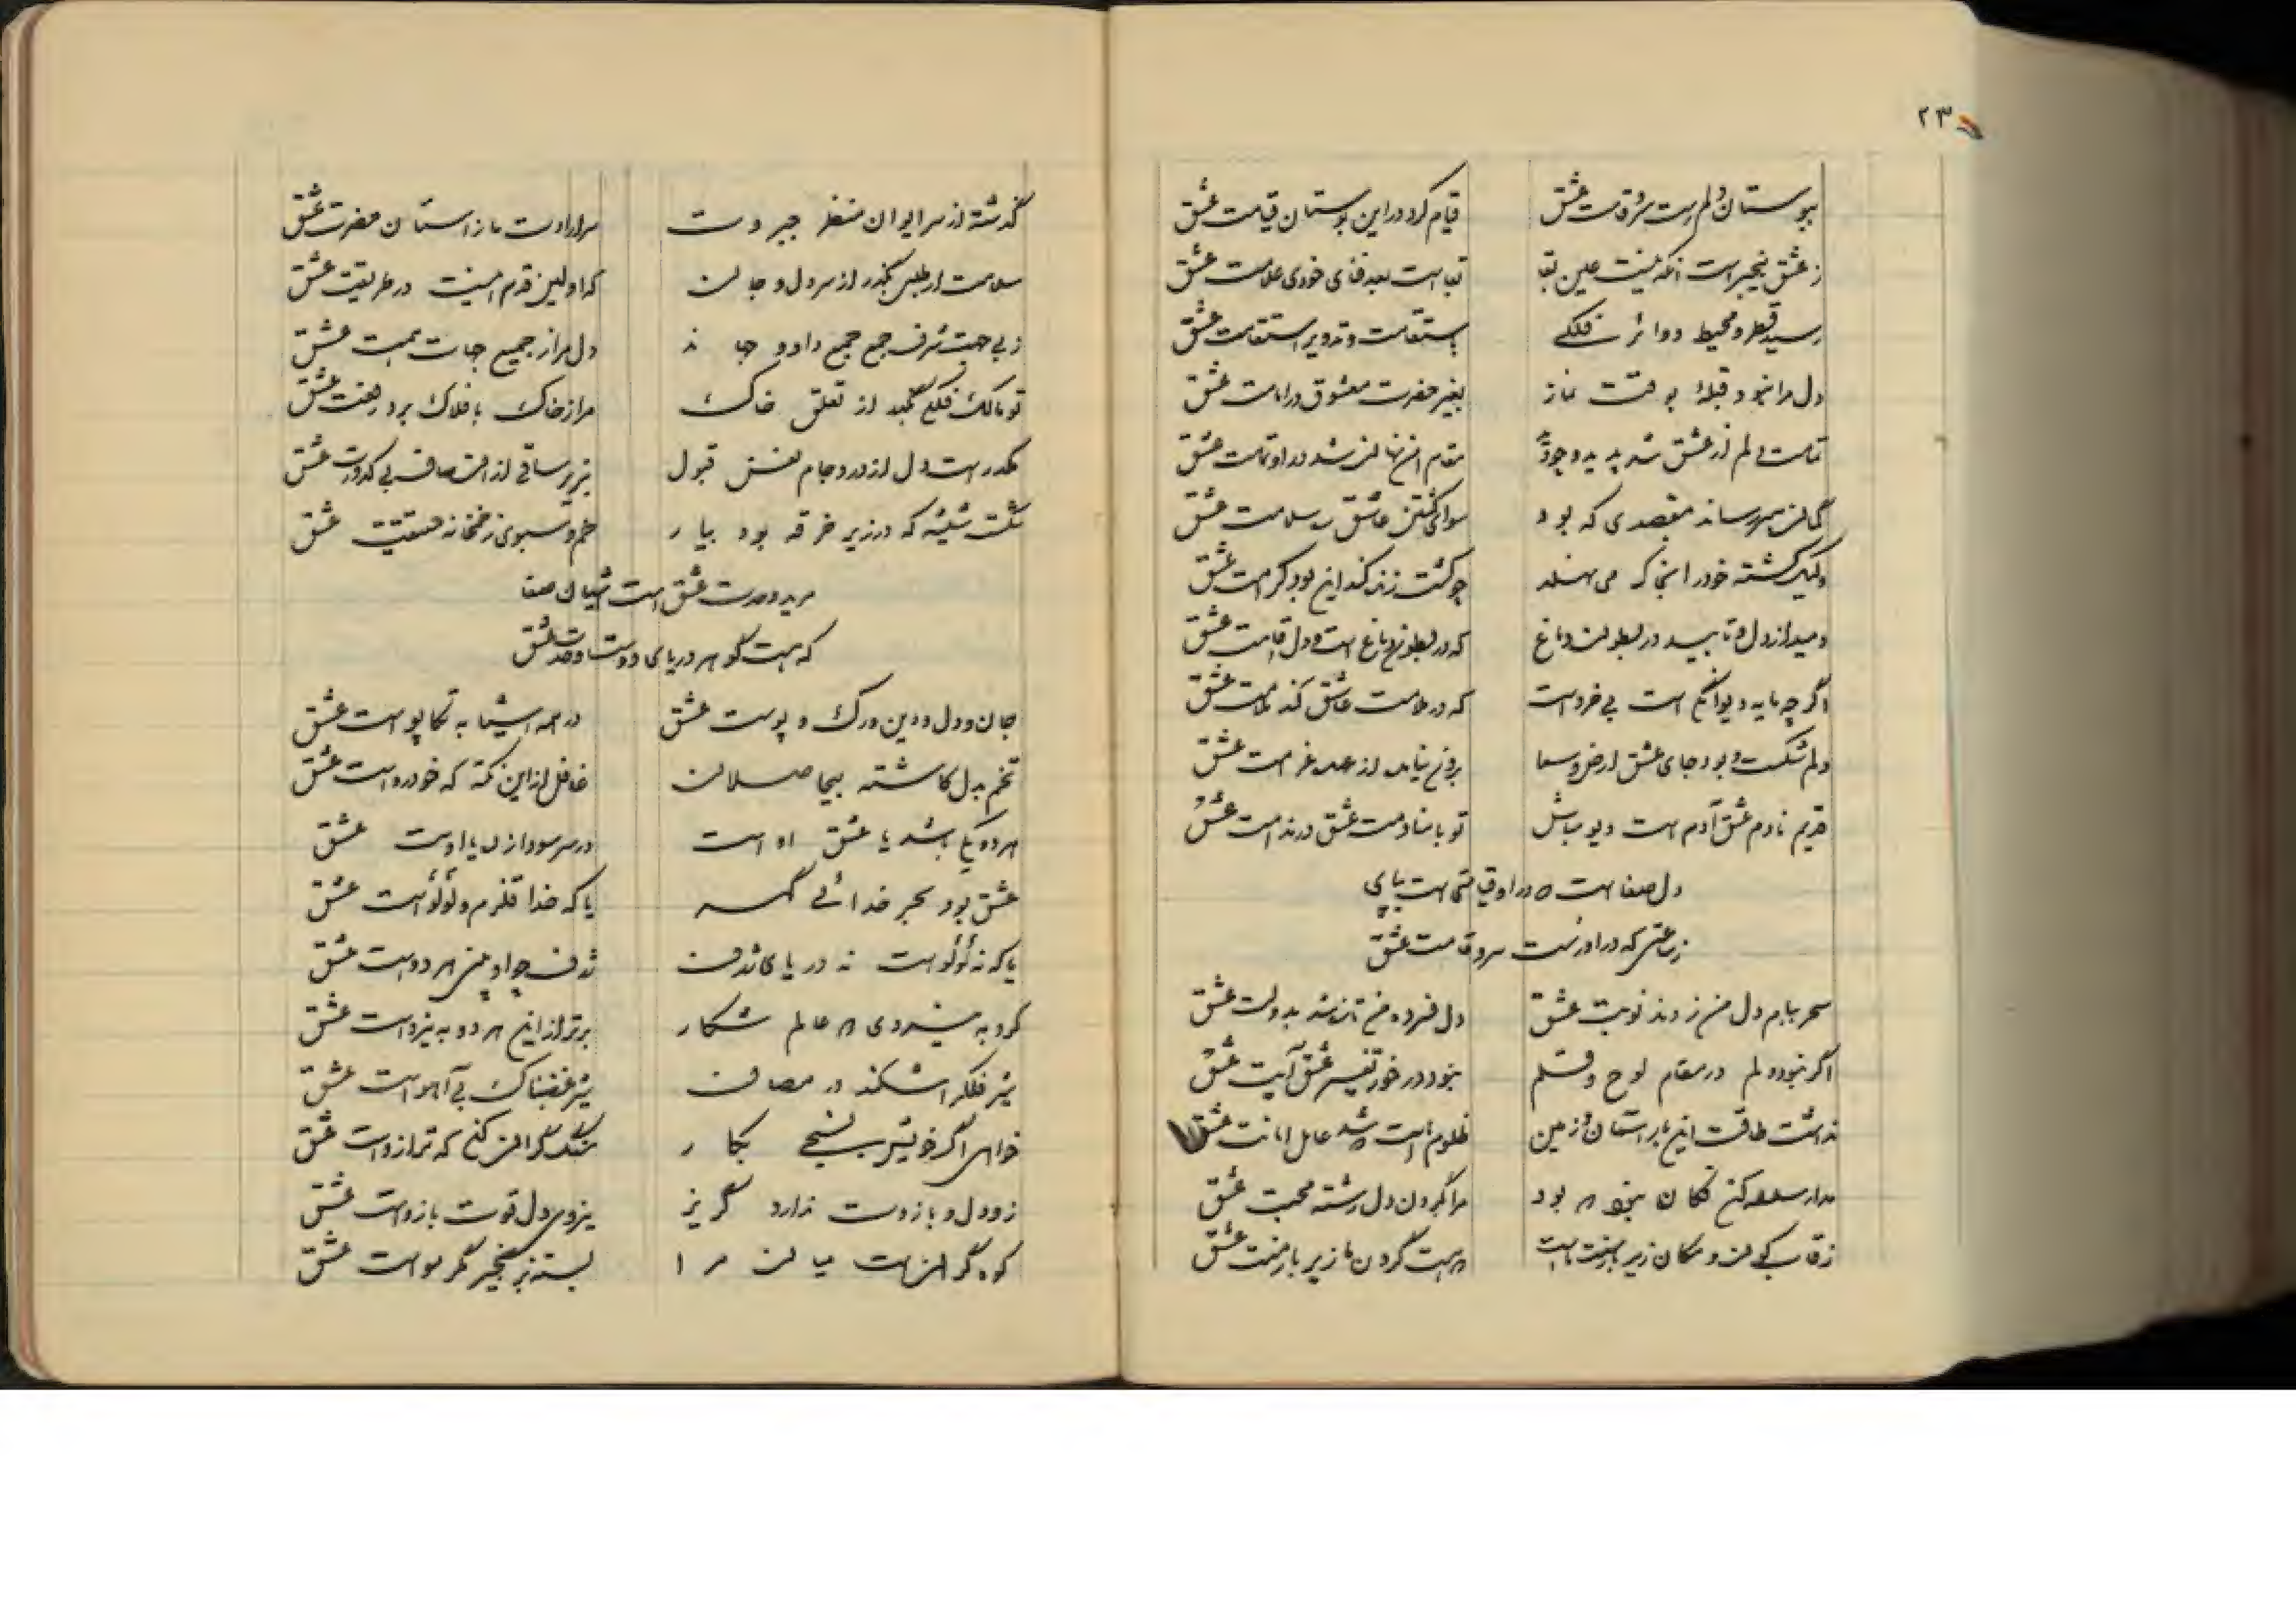 ۲۳
ببوستان دلم رست سرو قامت عشق
قیام کرد در این بوستان قیامت عشق
ز عشق بیخبر است آنکه نیست عین بقا
بقاست بعد فنای خودی علامت عشق
رسید قطر و محیط دوائر فلکی
باستقامت و تدویر استقامت عشق
دل مرا نبود قبلهٔ بوقت نماز
بغیر حضرت معشوق در امامت عشق
تمامت دلم از عشق شد پدید وجود
مقام انس نهان شد در او تمامت عشق
گمان مبر رساند مقصدی که بود
سوای کشتن عاشق ره سلامت عشق
ولیک کشته خود را نه می هلد
چو کشت زنده کند این بود کرامت عشق
دمید از دل و تابید در بطون دماغ
که در بطون دماغ است و دل اقامت عشق
اگر چه مایه دیوانگی است بی خرد است
که در ملامت عاشق کند ملامت عشق
دلم شکست و بود جای عشق ارض و سما
برون نیاید از عهد غرامت عشق
قدیم نادم عشق آدم است دیو مباش
تو با منادمت عشق در ندامت عشق
دل صفاست که در او قیامتی است بپای
ز عشق که در او رست سرو قامت عشق
سحر ببام دل من زدند نوبت عشق
دل فسرده من تازه شد بدولت عشق
اگر نبود دلم در مقام لوح و قلم
نبود در خور تفسیر عشق آیت عشق
نداشت طاقت این بار آسمان و زمین
ظلوم است که شد حامل امانت عشق
مدار سلسله کن فکان بنحو هر بود
مرا بگردن دل رشته محبت عشق
رقاب کون و مکان زیر بار منت ماست
که هست گردن ما زیر بار منت عشق
گذشته از سر ایوان منظر جبروت
سر ارادت ما ز آستان حضرت عشق
سلامت ار طلبی بگذر از سر دل و جان
که اولین قدم اینست در طریقت عشق
ز بی جهت شرف جمع جمع داد و جهاند
دل مرا ز جمیع جهات همت عشق
تو مالک فلکی گمید از تعلق خاک
مرا ز خاک بافلاک برد رفعت عشق
مکدر است دل از درد جام نفس قبول
بریز ساقی از آن صاف بی کدورت عشق
شکست شیشه که در زیر خرقه بود بیار
خم و سبوی ز خمخانه حقیقت عشق
مرید وحدت عشق است شیبان صفا
که هست گوهر دریای دوست وحدت عشق
جان و دل و دین و رگ و پوست عشق
در همه اشیا به تکاپوست عشق
تخم بدل کاشته بیحاصلان
غافل از این نکته که خودروست عشق
هر دو یکی باشد یا عشق اوست
در سر سودازده یا اوست عشق
عشق بود بحر خدائی گهر
یا که خدا قلزم و لؤلؤست عشق
یا که نه لؤلؤست نه دریای ژرف
ژرف چو او بینی هر دوست عشق
کرد به نیروی دو عالم شکار
برتر از این هر دو به نیروست عشق
شیر فلک را شکند در مصاف
شیر غضبناک بی آهوست عشق
خواهی اگر خویش بسنجی بکار
سنگ گران کن که ترازوست عشق
زور دل و بازوت ندارد گریز
نیروی دل قوت بازوست عشق
کوه گران است میان مرا
بسته بزنجیر گر موست عشق